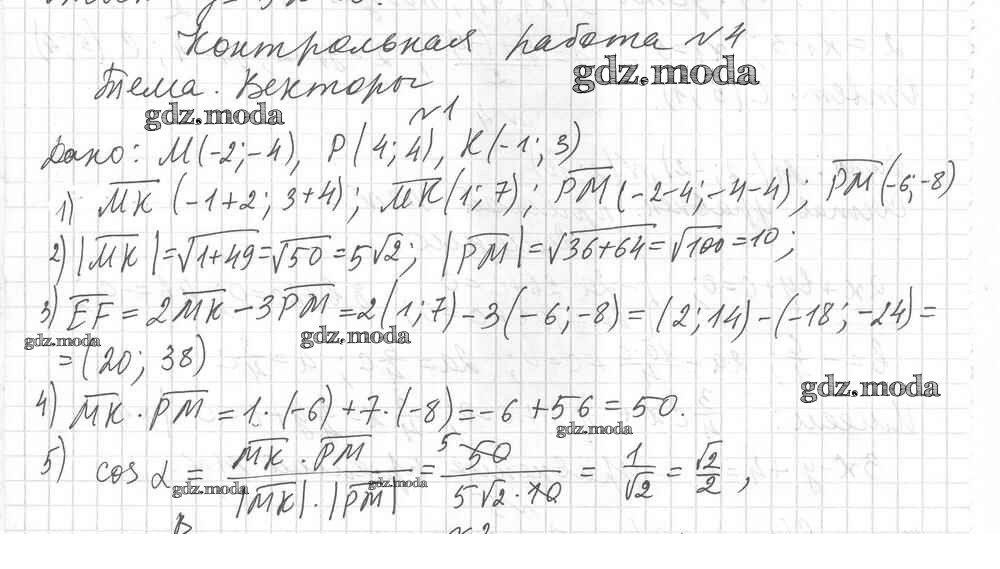 Контрольная работа №4
gdz.moda
Тема. Векторы
gdz.moda
№1
Дано: M(-2;-4), P(4;4), K(-1;3)
1) MK (-1+2; 3+4); MK(1;7); PM(-2-4;-4-4); PM(-6;-8)
2) |MK|=√1+49=√50=5√2; |PM|=√36+64=√100=10;
3) EF = 2MK - 3PM = 2(1;7) - 3(-6;-8) = (2;14)-(-18;-24)=
gdz.moda gdz.moda
= (20; 38)
gdz.moda
4) MK · PM = 1·(-6)+7·(-8)=-6+56=50.
gdz.moda
5) cos α = MK · PM / |MK|·|PM| = 5 50 / 5√2·10 = 1/√2 = √2/2,
gdz.moda gdz.moda